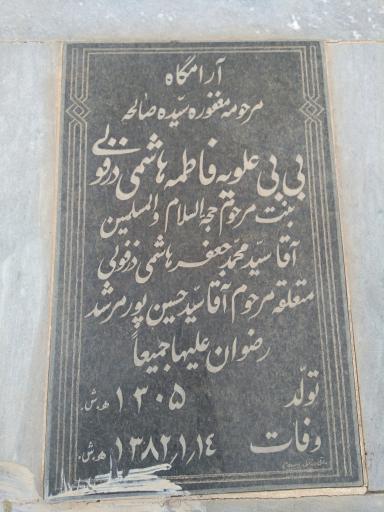 آرامگاه
مرحومه مغفوره سیّده صالحه
بی بی علویه فاطمه هاشمی دزفولی
بنت مرحوم حجة السلام والمسلمین
آقا سیّد محمّد جعفر هاشمی دزفولی
متعلقه مرحوم آقا سیّد حسین پور مرشد
رضوان علیها جمیعاً
تولّد ۱۳۰۵ ه‍.ش.
وفات ۱۳۸۲/۱/۱۴ ه‍.ش.